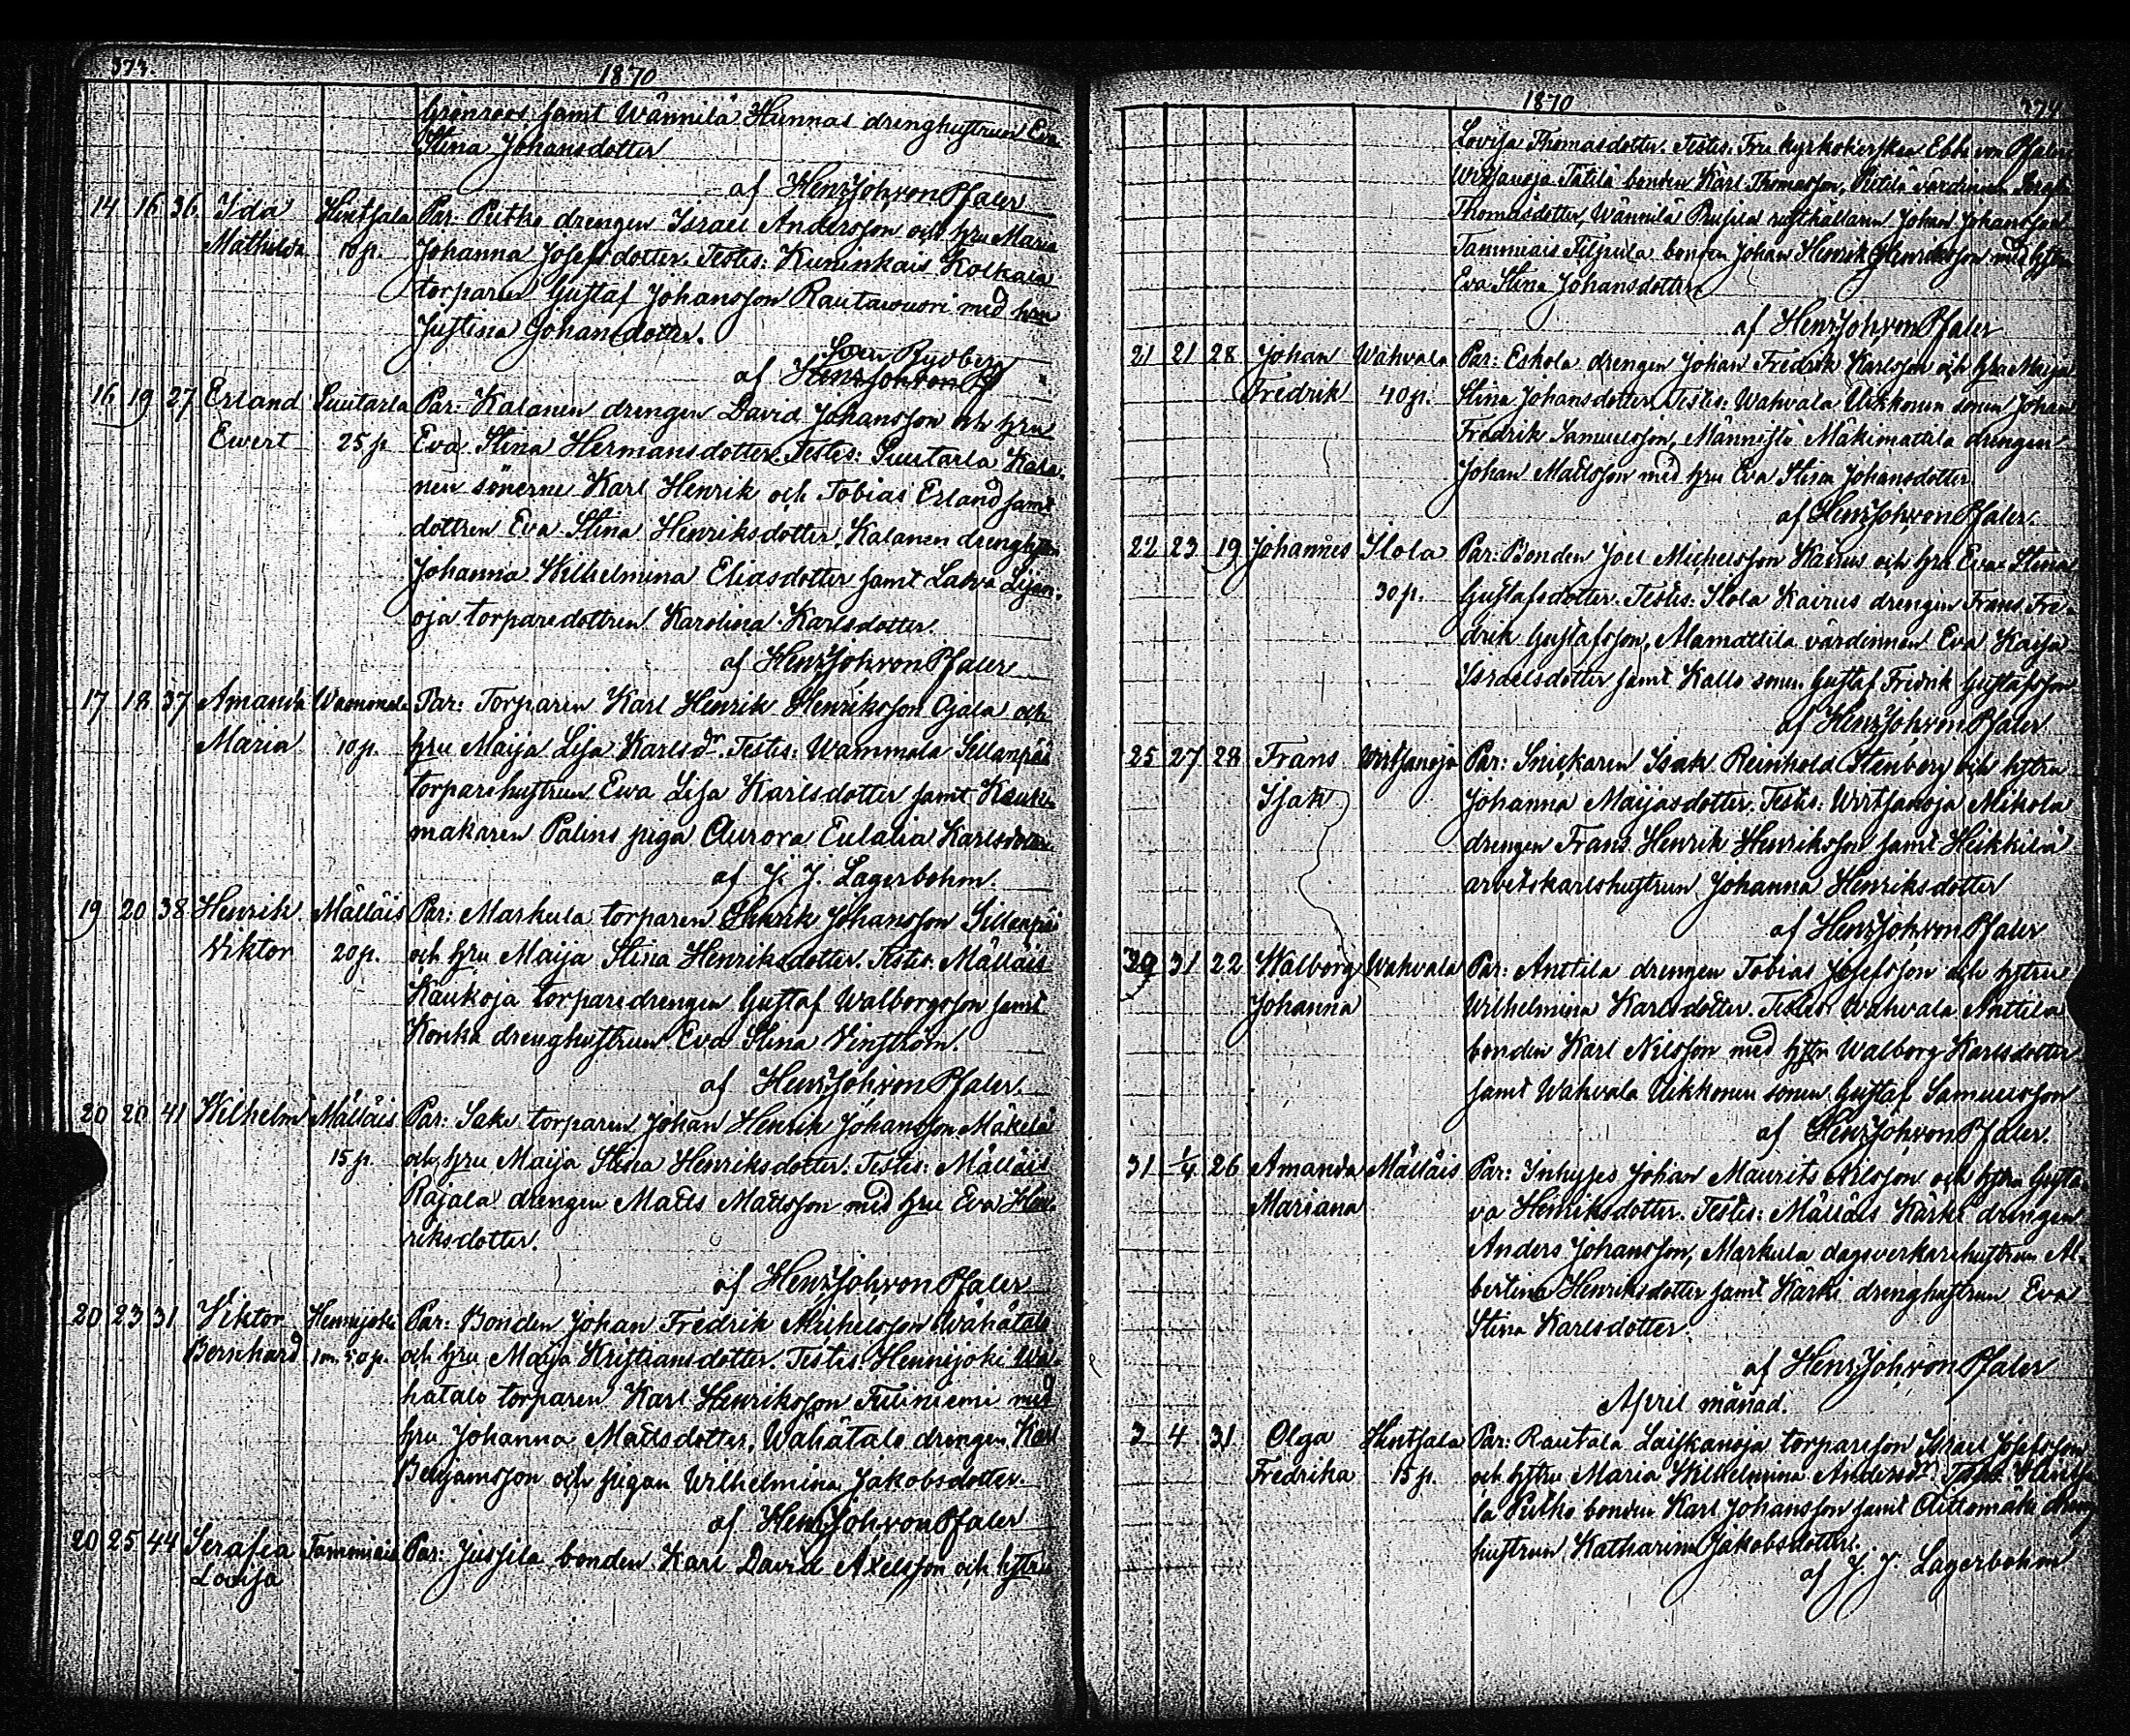 373.
1870
Grönroos samt Wännilä Hunnas drenghustrun Eva
Stina Johansdotter
af Henr Joh von Pfaler
14 16 36 Ida Hintsala Par: Putko drengen Israel Andersson och hru Maria
Mathilda 10 p. Johanna Josefsdotter. Testes: Kuninkais Kolkala
torparen Gustaf Johansson Rautawuori med hru
Justina Johansdotter.
Rydberg
af Henr Joh von Pf
16 19 27 Erland Suutarla Par: Kalanen drengen David Johansson och hru
Ewert 25 p Eva Stina Hermansdotter. Testes: Suutarla Kala-
nen sönerne Karl Henrik och Tobias Erland samt
dottren Eva Stina Henriksdotter, Kalanen drenghstn
Johanna Wilhelmina Eliasdotter samt Latva Lijan-
oja torparedottren Karolina Karlsdotter.
af Henr Joh von Pfaler
17 18 37 Amanda Wammala Par: Torparen Karl Henrik Henriksson Ojala och
Maria 10 p. hru Maija Lisa Karlsdr. Testes: Wammala Sillanpää
torparehustrun Ewa Lisa Karlsdotter samt
makaren Palins piga Aurora Eulalia Karlsdotter
af J. J. Lagerbohm.
19 20 38 Henrik Mälläis Par: Markula torparen Henrik Johansson Sillanpää
Viktor 20 p. och hru Maija Stina Henriksdotter. Testes: Mälläis
Kaukoja torparedrengen Gustaf Walborgsson samt
Konka drenghustrun Eva Stina Vinström.
af Henr Joh von Pfaler.
20 20 41 Wilhelm Mälläis Par: Saku torparen Johan Henrik Johansson Mäkilä
15 p. och hru Maija Stina Henriksdotter. Testes: Mälläis
Rajala drengen Matts Mattsson med hru Eva Hen-
riksdotter.
af Henr Joh von Pfaler
20 23 31 Viktor Hennijoki Par: Bonden Johan Fredrik Michelsson Wähätalo
Bernhard 1 m. 50 p. och hru Maija Kristiansdotter. Testes: Hennijoki Wä-
hätalo torparen Karl Henriksson Tuiniemi med
hru Johanna Mattsdotter, Wähätalo drengen Karl
Benjamsson och pigan Wilhelmina Jakobsdotter.
af Henr Joh von Pfaler
20 25 44 Serafia Tammiais Par: Jussila bonden Karl David Axelsson och hstru
Lovisa
1870
374
Lovisa Thomasdotter. Testes: Fru kyrkoherskan Ebba von Pfaler
Wirtsanoja Tätilä bonden Karl Thomasson, Rietilä värdinnan
Thomasdotter, Wännilä rusthållaren Johan Johansson
Tammiais Tilpula bonden Johan Henrik Henriksson med hstru
Eva Stina Johansdotter
af Henr Joh von Pfaler
21 21 28 Johan Wahvala Par: Eskola drengen Johan Fredrik Karlsson och hru Maija
Fredrik 40 p. Stina Johansdotter. Testes: Wahvala Uikkonen sonen Johan
Fredrik Samuelsson, Männistö Mäkimattila drengen
Johan Mattsson med hru Eva Stina Johansdotter.
af Henr Joh von Pfaler.
22 23 19 Johannes Ilola Par: Bonden Joel Michelsson Kairus och hru Eva Stina
30 p. Gustafsdotter. Testes: Ilola Kairus drengen Frans Fre-
drik Gustafsson, Mamattila värdinnan Eva Kaisa
Israelsdotter samt Kallo sonen Gustaf Fredrik Gustafsson
af Henr Joh von Pfaler
25 27 28 Frans Wirtsanoja Par: Snickaren Isak Reinhold Stenberg och hstru
Isak Johanna Maijasdotter. Testes: Wirtsanoja Mikola
drengen Frans Henrik Henriksson samt Heikkilä
arbetskarlshustrun Johanna Henriksdotter
af Henr Joh von Pfaler
29 31 22 Walborg Wahvala Par: Anttila drengen Tobias Josefsson och hstru
Johanna Wilhelmina Karlsdotter. Testes: Wahvala Anttila
bonden Karl Nilsson med hstr Walborg Karlsdotter
samt Wahvala Uikkonen sonen Gustaf Samuelsson
af Henr Joh von Pfaler.
31 1/4 26 Amanda Mälläis Par: Inhyses Johan Maurits Nilsson och hstru Gusta-
Mariana va Henriksdotter. Testes: Mälläis Kärki drengen
Anders Johansson, Markula dagsverkarehustrun Al-
bertina Henriksdotter samt Kärki drenghustrun Eva
Stina Karlsdotter.
af Henr Joh von Pfaler
April månad.
3 4 31 Olga Hintsala Par: Rautala Laiskanoja torpareson Israel Josefsson
Fredrika 15 p. och hstru Maria Wilhelmina Andersdr. Testes: Hintsa-
la Putko bonden Karl Johansson samt dreng
hustrun Katharina Jakobsdotter.
af J. J. Lagerbohm